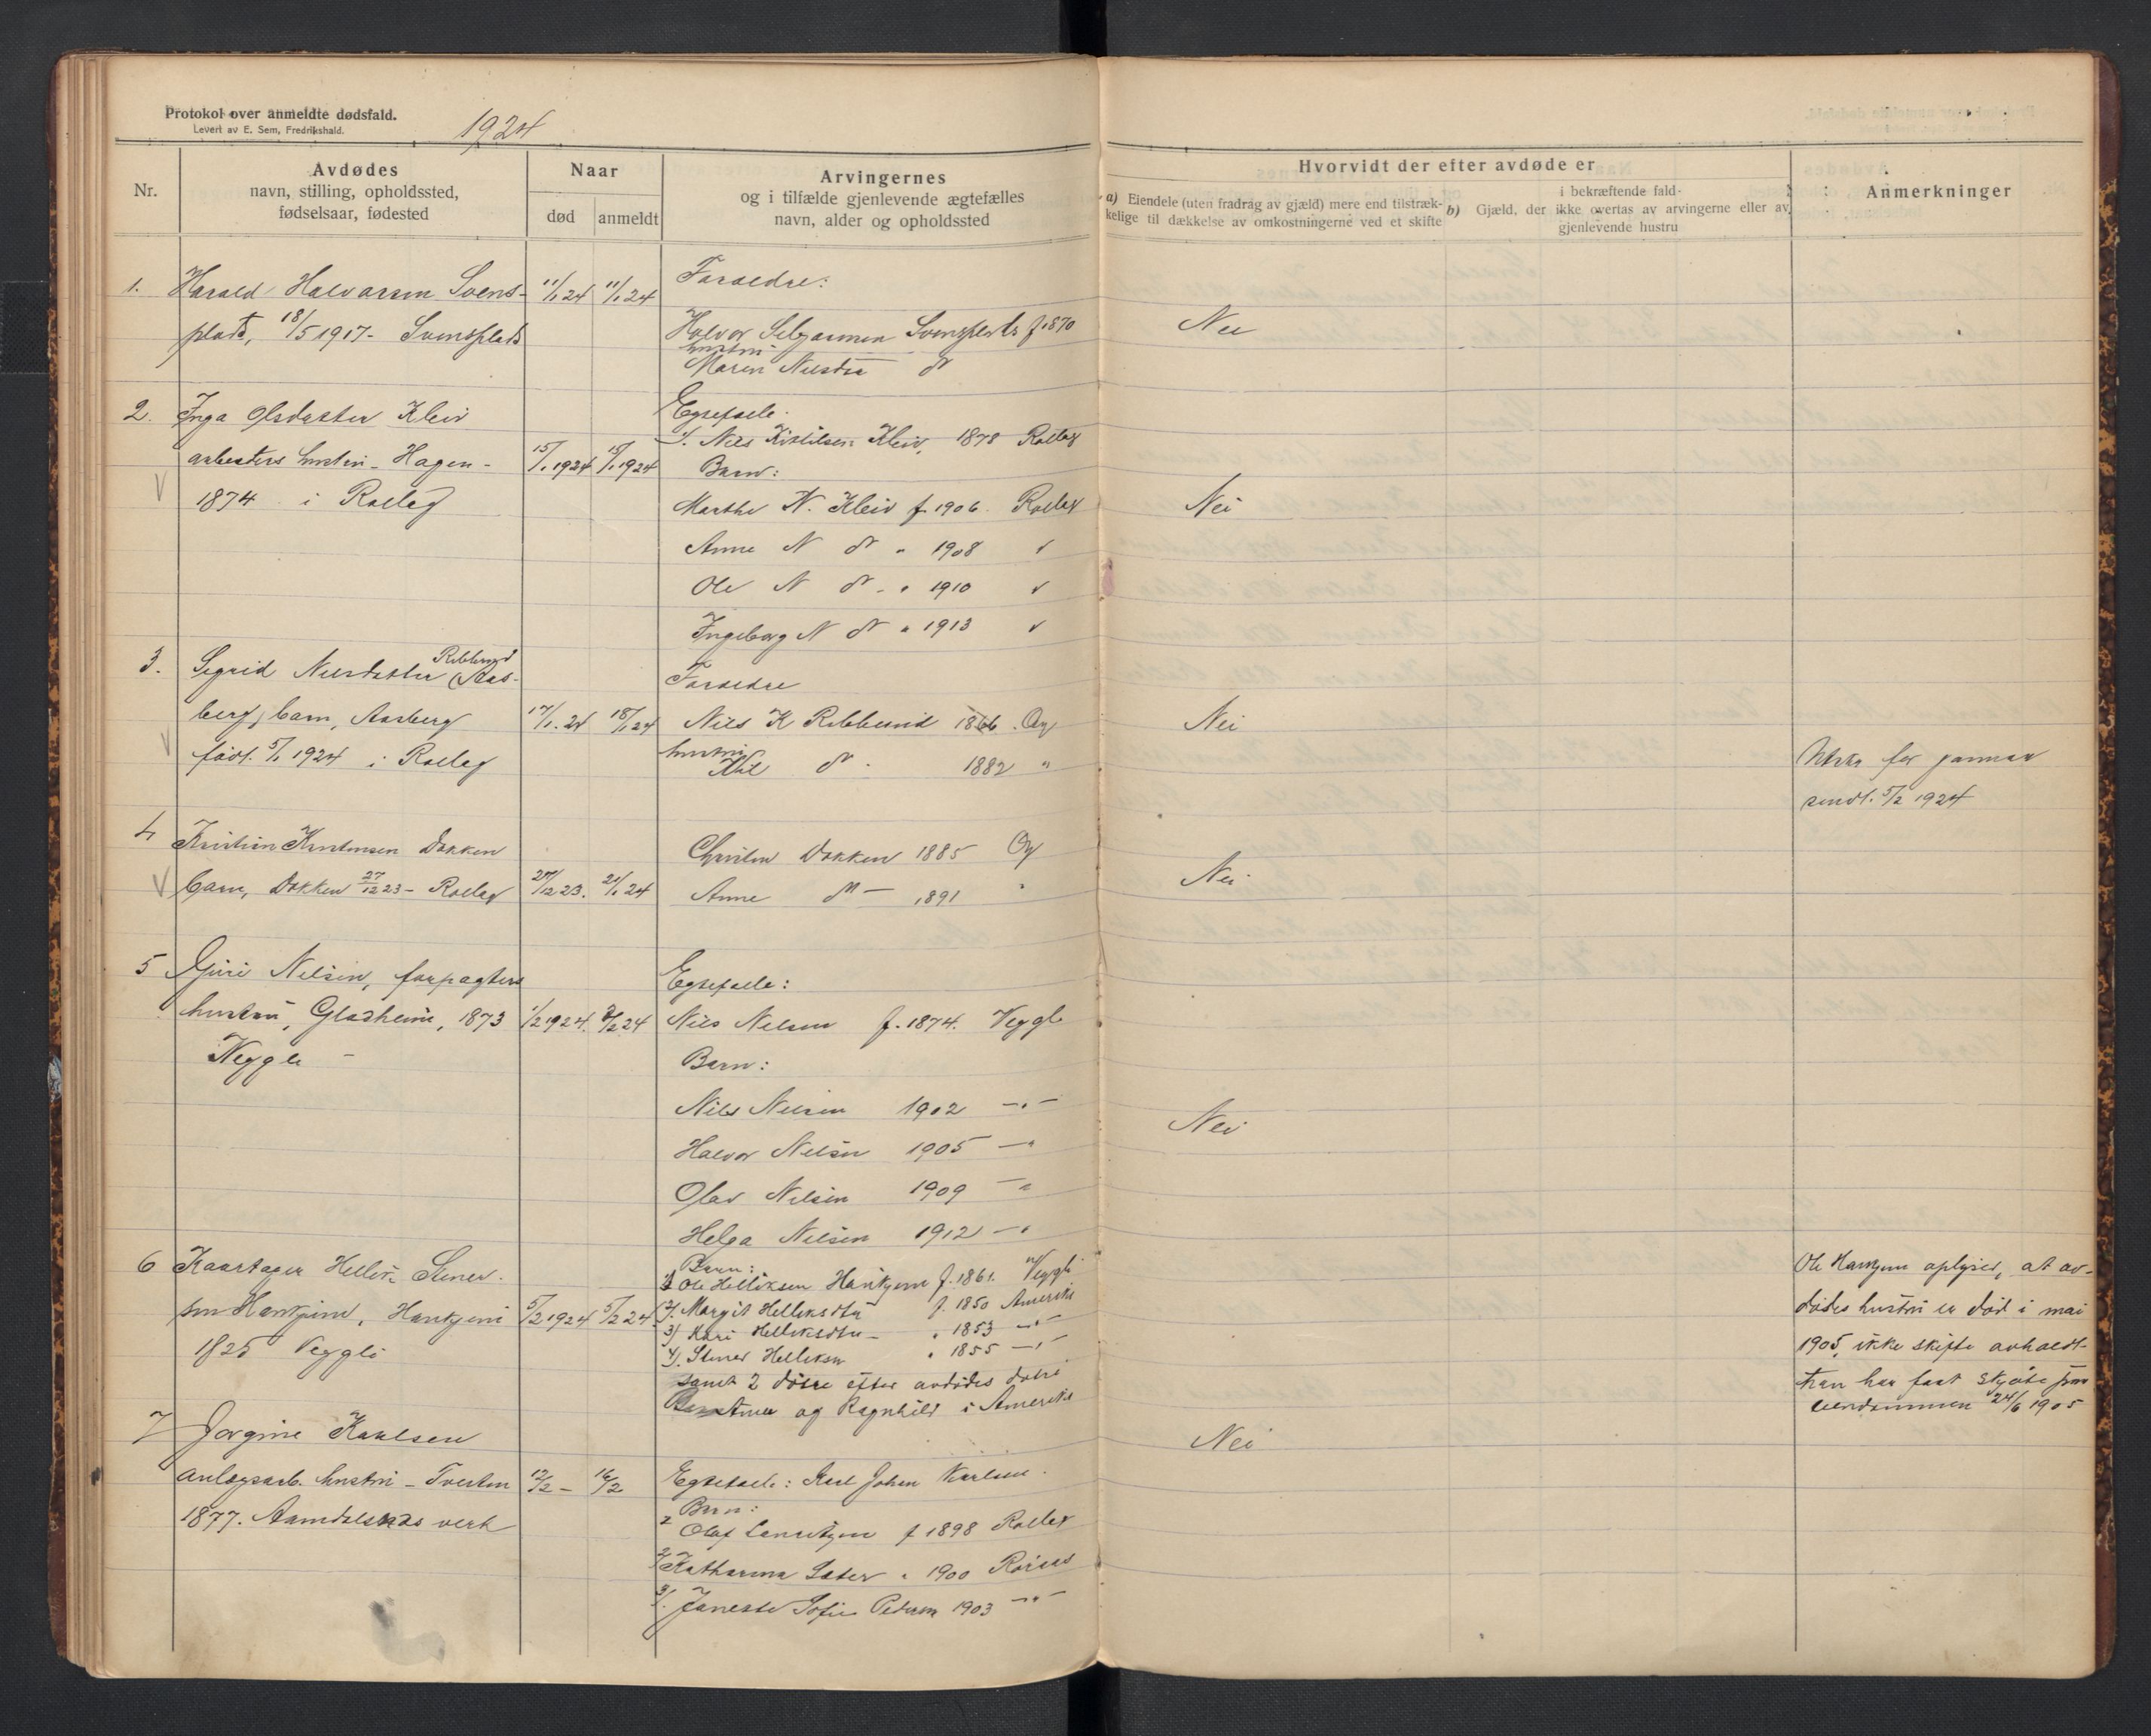 Protokol over anmeldte dødsfald.
Levert av E. Sem, Fredrikshald.
1924
Nr.
Avdødes
navn, stilling, opholdssted,
fødselsaar, fødested
Naar
død
anmeldt
Arvingernes
og i tilfælde gjenlevende ægtefælles
navn, alder og opholdssted
Hvorvidt der efter avdøde er
a) Eiendele (uten fradrag av gjæld) mere end tilstræk-
kelige til dækkelse av omkostningerne ved et skifte
b) Gjæld, der
i bekræftende fald
ikke overtas av arvingerne eller av
gjenlevende hustru
Anmerkninger
1. Harald Halvorsen Svens-
plads, 18/5 1917 - Svensplads
11/1 24 11/1 24
Foraeldre:
Halvor Svensplads f 1870
hustru
Maren Nilsdtr do
Nei
2. Inga Olsdatter Kleiv
arbeiders hustru - Hagen -
1874 i Rollag
15/1 1924 15/1 1924
Egtefaele.
1. Nils Kittilsen Kleiv, 1878 Rollag
Barn:
Marthe N. Kleiv f. 1906. Rollag
Anne N do " 1908
Ole N do - " 1910
Ingeborg N do " 1913
Nei
3. Sigrid Nilsdatter Ribberud (Aas-
berg), barn, Aasberg
født. 5/1 1924 i Rollag
17/1. 24 18/1 24
Foraeldre
Nils K Ribberud 1866. Og
hustru
do - 1882 "
Nei
for
sendt. 5/2 1924
4 Kristian Kristensen Dokken
barn, Dokken 27/12 23 - Rollag
27/12 23. 21/1 24
Christen Dokken 1885 Og
Anne do - 1891 "
Nei
5 Guri Nilsen, forpagters
hustru, Gladheim, 1873
Veggli -
1/2 1924. 2/2 24
Egtefaele:
Nils Nilsen f. 1874. Veggli
Barn:
Nils Nilsen 1902 - " -
Halvor Nilsen 1905 - "
Olav Nilsen 1909 - "
Helga Nilsen 1912 - "
Nei
6 Kaartager Hellik Stener-
sen Haukjem, Haukjem
1825 Veggli
5/2 1924 5/2 24.
Barn:
1) Ole Helliksen Haukjem f. 1861. Veggli
2). Margit Helliksdtr f. 1850 Amerika
3) Kari Helliksdtr - " 1853 - " -
4). Stener Helliksen " 1855 - " -
samt 2 døtre efter avdødes datter
Anne og Ragnhild i Amerika
Ole Haukjem oplyser, at av-
dødes hustru er død i mai
1905, ikke skifte avholdt.
Han har faat skjøte paa
eiendommen 24/6 1905
7 Jorgine Karlsen
anlægsarb. hustru - Tveiten
1877. Aamdals verk
12/2 - 16/2
Egtefaele: Karl Johan Karlsen.
Barn:
Olaf f 1898 Rollag
2/ Katharina Sæter " 1900 Røraas
3/. Sofie Pedersen 1903 - " -
Nei